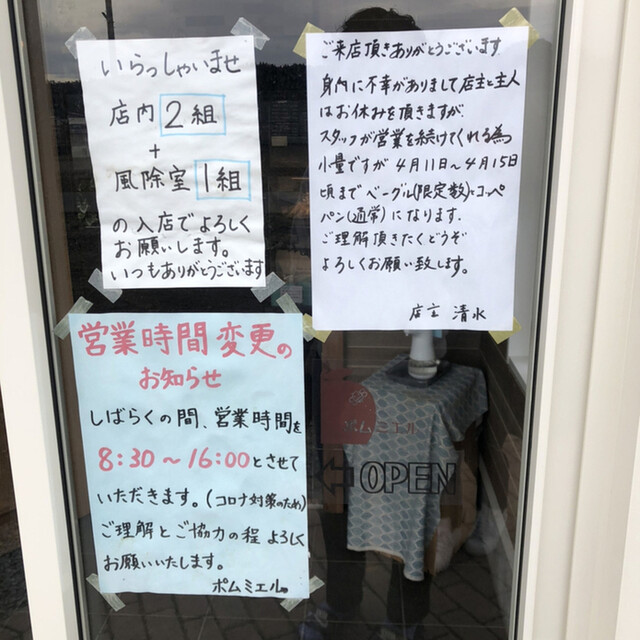 いらっしゃいませ
店内 2組
+
風除室 1組
の入店でよろしく
お願いします。
いつもありがとうございます
ご来店頂きありがとうございます
身内に不幸がありまして店主と主人
はお休みを頂きますが、
スタッフが営業を続けてくれる為
小量ですが4月11日〜4月15日
頃までベーグル(限定数)とコッペ
パン(通常)になります.
ご理解頂きたくどうぞ
よろしくお願い致します。
店主 清水
営業時間変更の
お知らせ
しばらくの間、営業時間を
8:30〜16:00とさせて
いただきます。(コロナ対策のため)
ご理解とご協力の程 よろしく
お願いいたします。
ポムミエル。
ポムミエル
OPEN